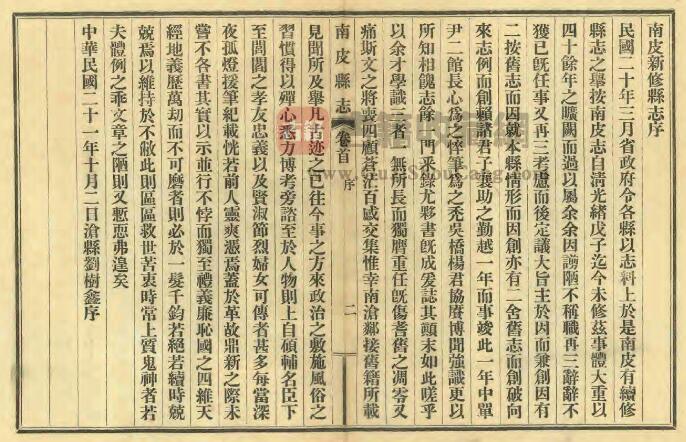 南皮新修縣志序
民國二十年三月省政府令各縣以志料上於是南皮有續修
縣志之舉按南皮志自清光緒戊子迄今未修茲事體大重以
四十餘年之曠闕而過以屬余余因謭陋不稱職再三辭辭不
獲已既任事又再三考慮而後定議大旨主於因而兼創因有
二按舊志而因就本縣情形而因創亦有二舍舊志而創破向
來志例而創賴諸君子襄助之勤越一年而事竣此一年中單
尹二館長心為之悴筆為之禿吳橋楊君協賡博聞強識更以
所知相餽志餘一門采錄尤夥書既成爰誌其顛末如此嗟乎
以余才學識三者一無所長而獨膺重任既傷耆舊之凋零又
痛斯文之將喪四顧蒼茫百感交集惟幸南滄鄰接舊籍所載
南皮縣志
卷首
序
二
見聞所及舉凡古迹之已往今事之方來政治之敷施風俗之
習慣得以殫心悉力博考旁諮至於人物則上自碩輔名臣下
至閭閻之孝友忠義以及賢淑節烈婦女可傳者甚多每當深
夜孤燈援筆紀載恍若前人靈爽憑焉蓋於革故鼎新之際未
嘗不各書其實以示並行不悖而獨至禮義廉恥國之四維天
經地義歷萬劫而不可磨者則必於一髮千鈞若絕若續時兢
兢焉以維持於不敝此則區區救世苦衷時常上質鬼神者若
夫體例之乖文章之陋則又慙恧弗遑矣
中華民國二十一年十月二日滄縣劉樹鑫序